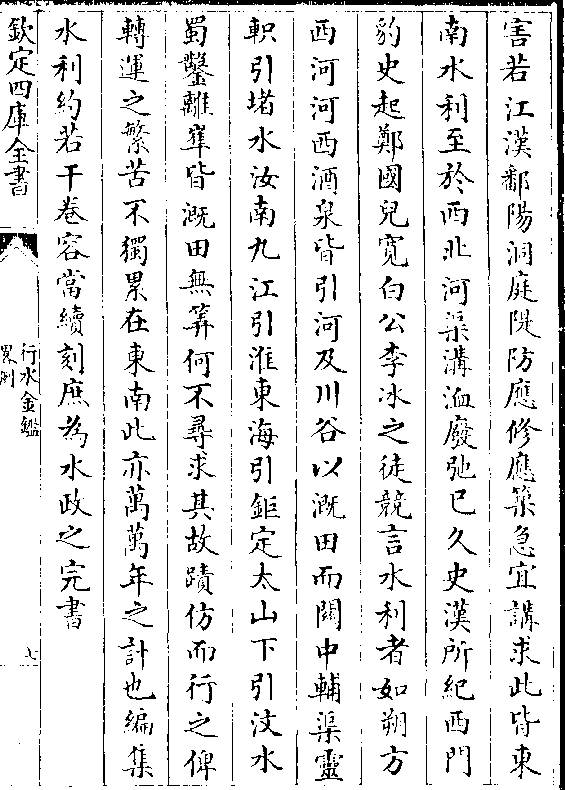 害若江漢鄱陽洞庭隄防應修應築急宜講求此皆東
南水利至於西北河渠溝洫廢弛已久史漢所紀西門
豹史起鄭國兒寛白公李冰之徒競言水利者如朔方
西河河西酒泉皆引河及川谷以溉田而關中輔渠靈
軹引堵水汝南九江引淮東海引鉅定太山下引汶水
蜀鑿離䧹皆溉田無筭何不尋求其故蹟仿而行之俾
轉運之繁苦不獨累在東南此亦萬萬年之計也編集
水利約若干卷容當續刻庶為水政之完書
欽定四庫全書
行水金鑑
畧例
七